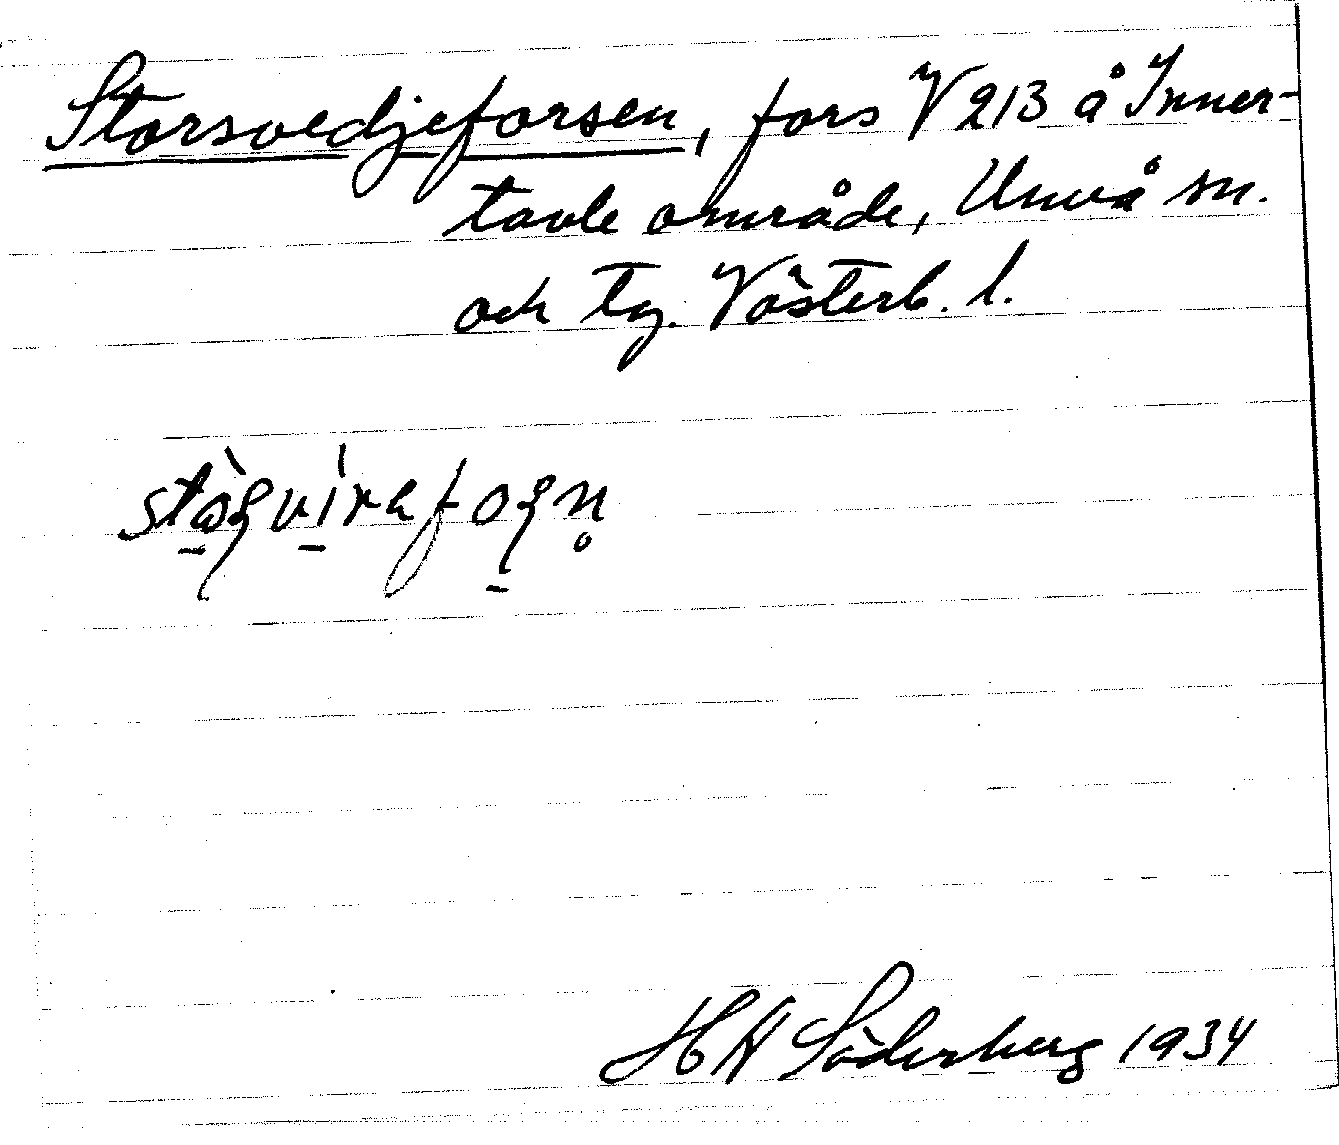 Storsvedjeforsen, fors V 213 å Inner-
tavle område, Umeå sn.
och tg. Västerb. l.
H Söderberg 1934